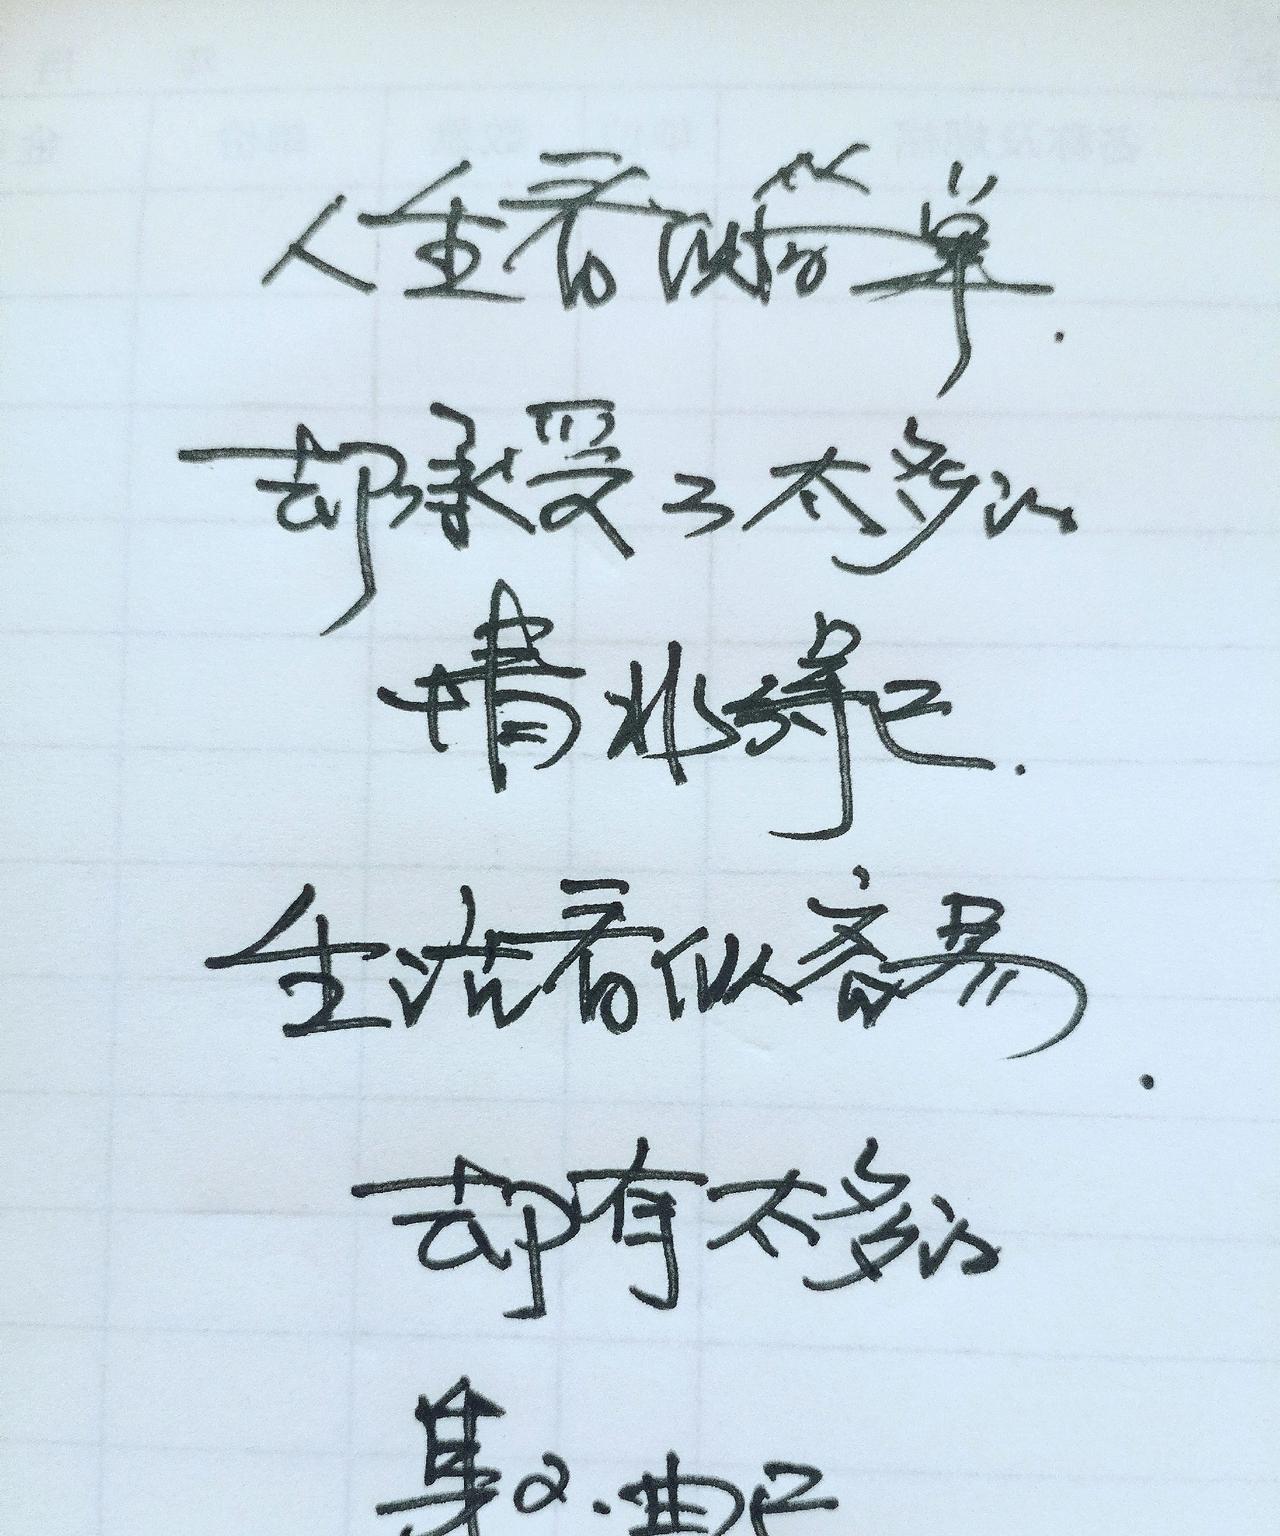 人生看似简单.
却承受了太多的
情非得已.
生活看似容易.
却有太多的
身不由己